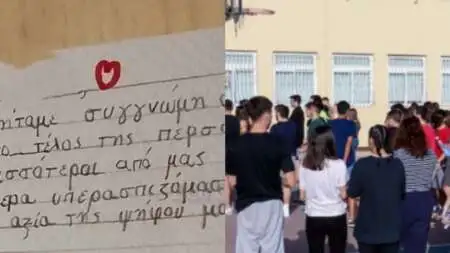 ήταμε συγγνώμη
ο τέλος της περσ
σσότεροι από μας
ερα υπερασπιζόμασ
αξία της ψήφου μα